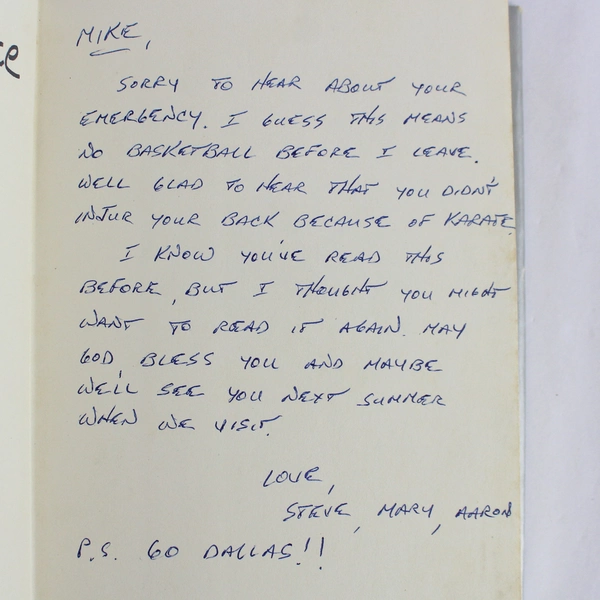 MIKE,
SORRY TO HEAR ABOUT YOUR
EMERGENCY. I GUESS THIS MEANS
NO BASKETBALL BEFORE I LEAVE.
WELL GLAD TO HEAR THAT YOU DIDN'T
INJUR YOUR BACK BECAUSE OF KARATE
I KNOW YOU'VE READ THIS
BEFORE, BUT I THOUGHT YOU MIGHT
WANT TO READ IT AGAIN. MAY
GOD BLESS YOU AND MAYBE
WE'LL SEE YOU NEXT SUMMER
WHEN WE VISIT.
LOVE,
STEVE, MARY, AARON
P.S. GO DALLAS!!